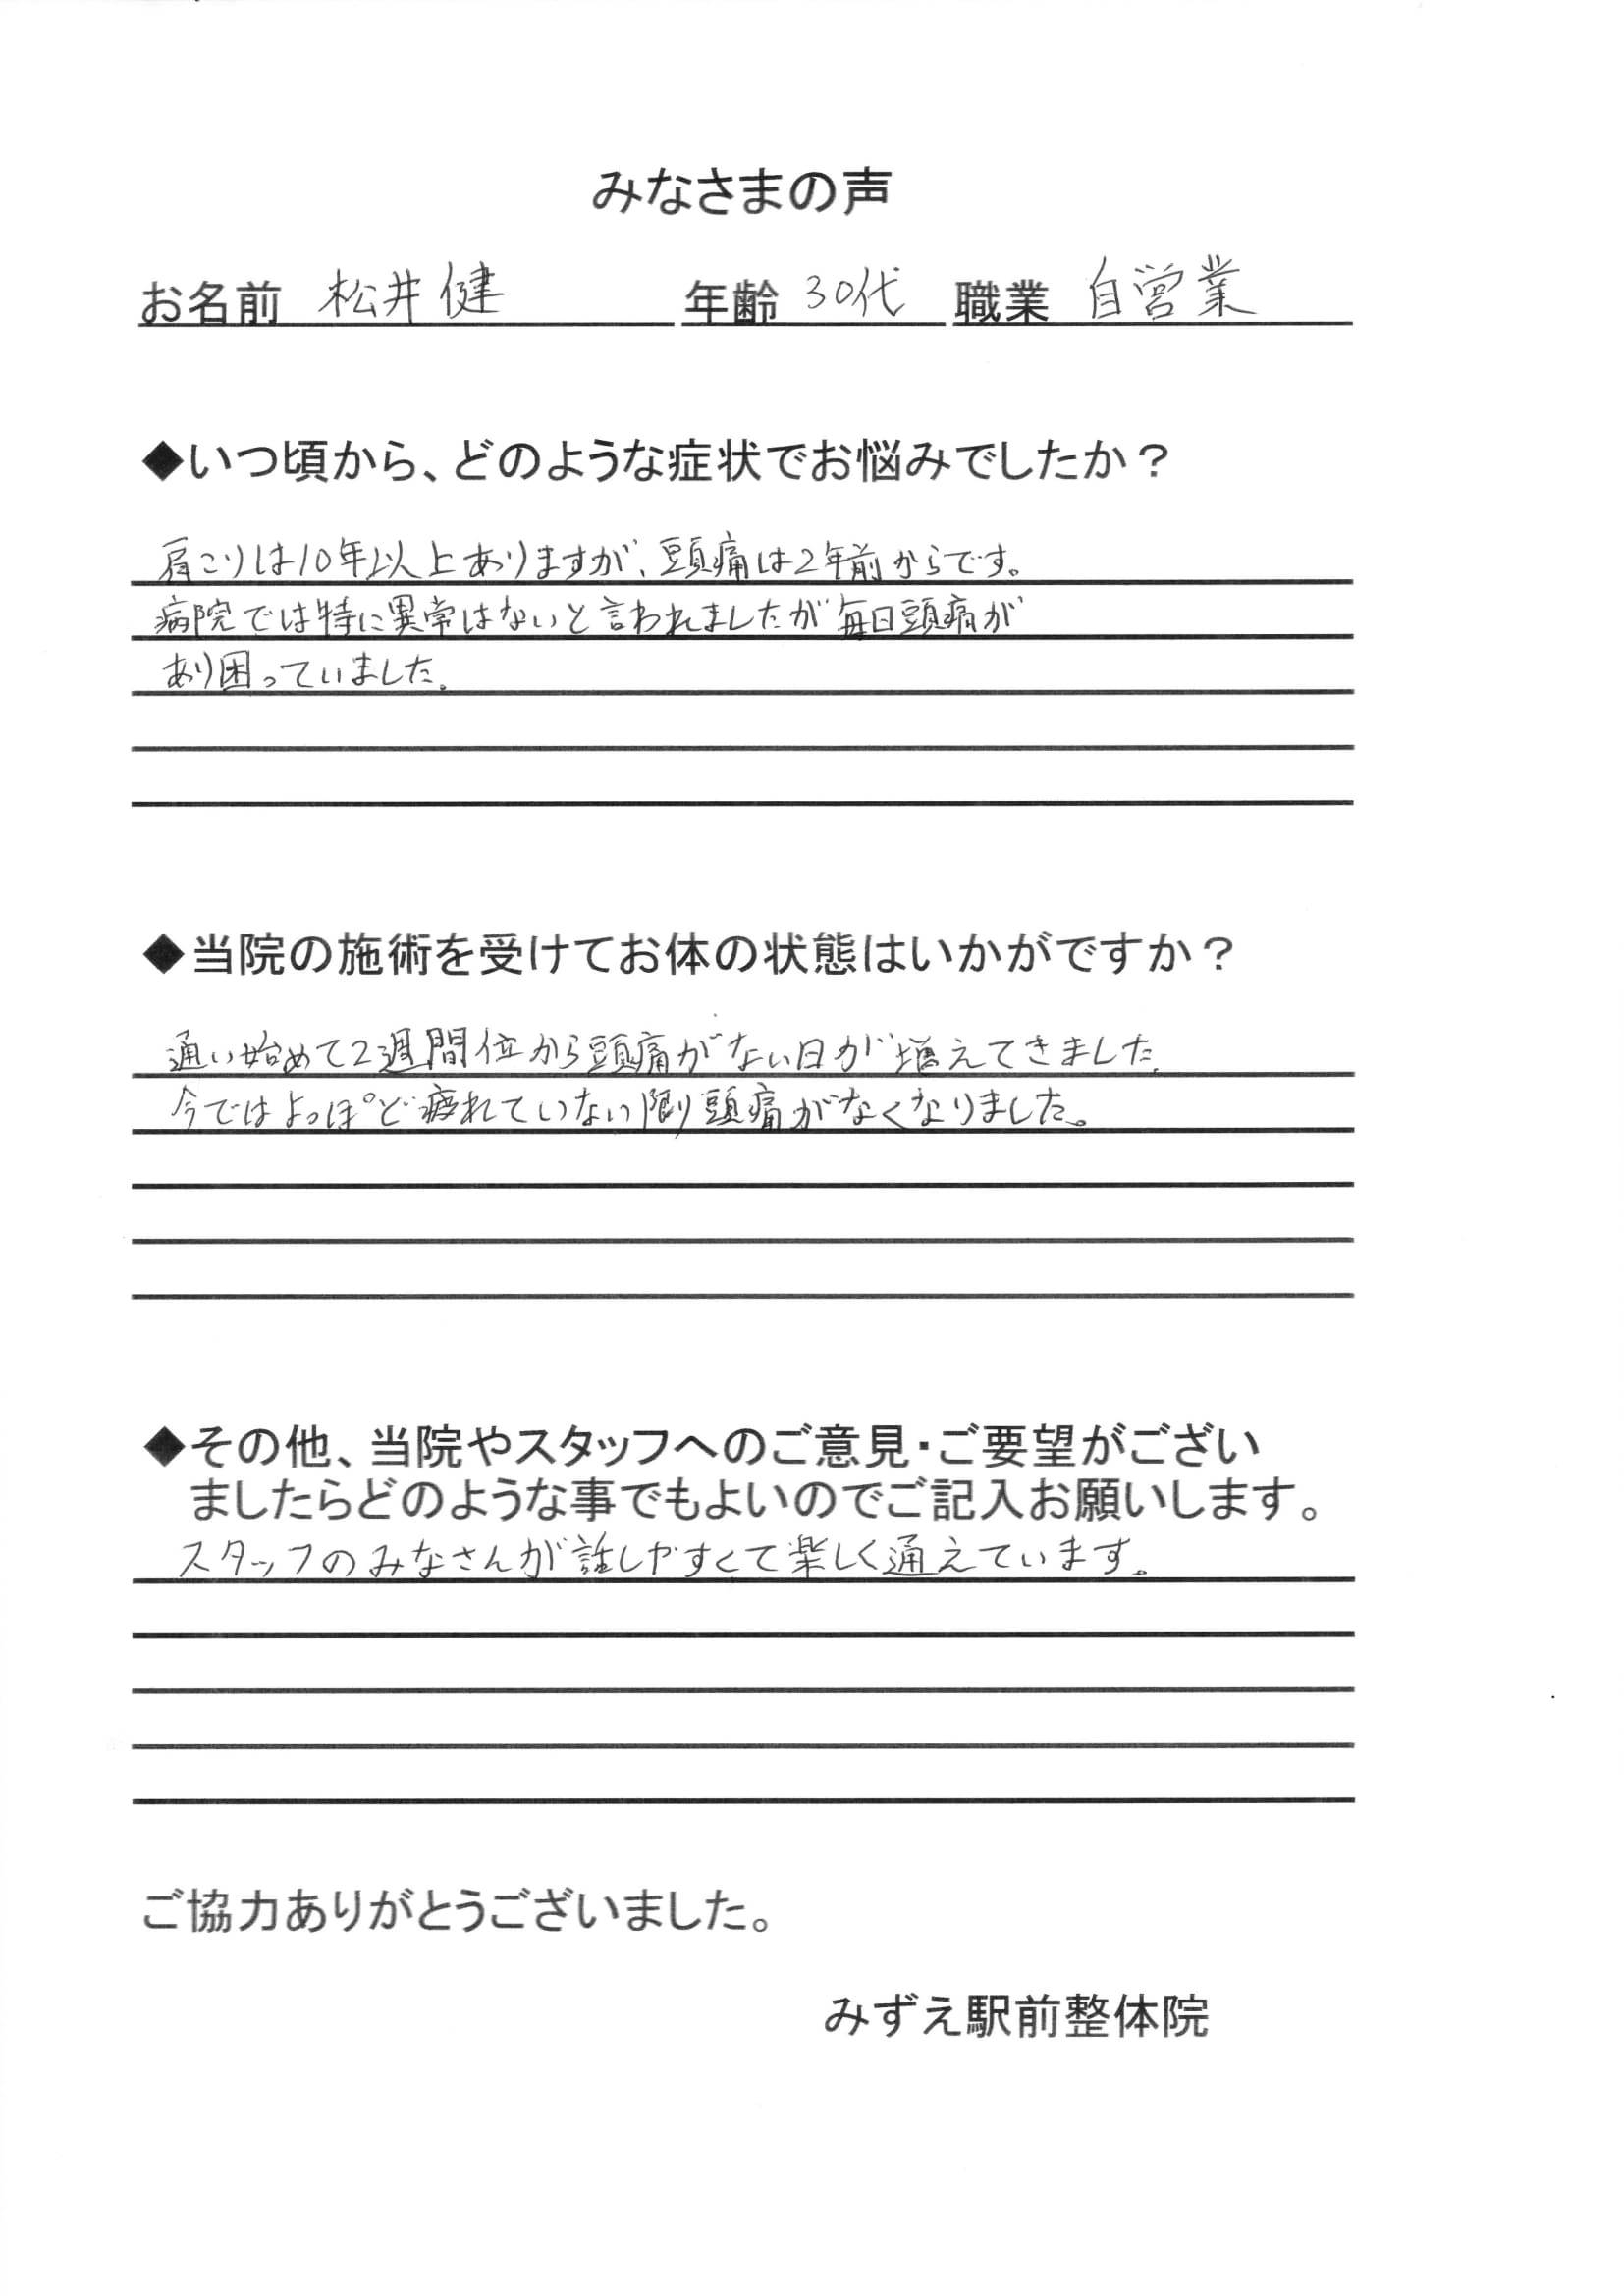 みなさまの声
お名前 松井健 年齢 30代 職業 自営業
◆いつ頃から、どのような症状でお悩みでしたか？
肩こりは10年以上ありますが、頭痛は2年前からです。
病院では特に異常はないと言われましたが毎日頭痛が
あり困っていました。
◆当院の施術を受けてお体の状態はいかがですか？
通い始めて2週間位から頭痛がない日が増えてきました。
今ではよっぽど疲れていない限り頭痛がなくなりました。
◆その他、当院やスタッフへのご意見・ご要望がござい
ましたらどのような事でもよいのでご記入お願いします。
スタッフのみなさんが話しやすくて楽しく通えています。
ご協力ありがとうございました。
みずえ駅前整体院